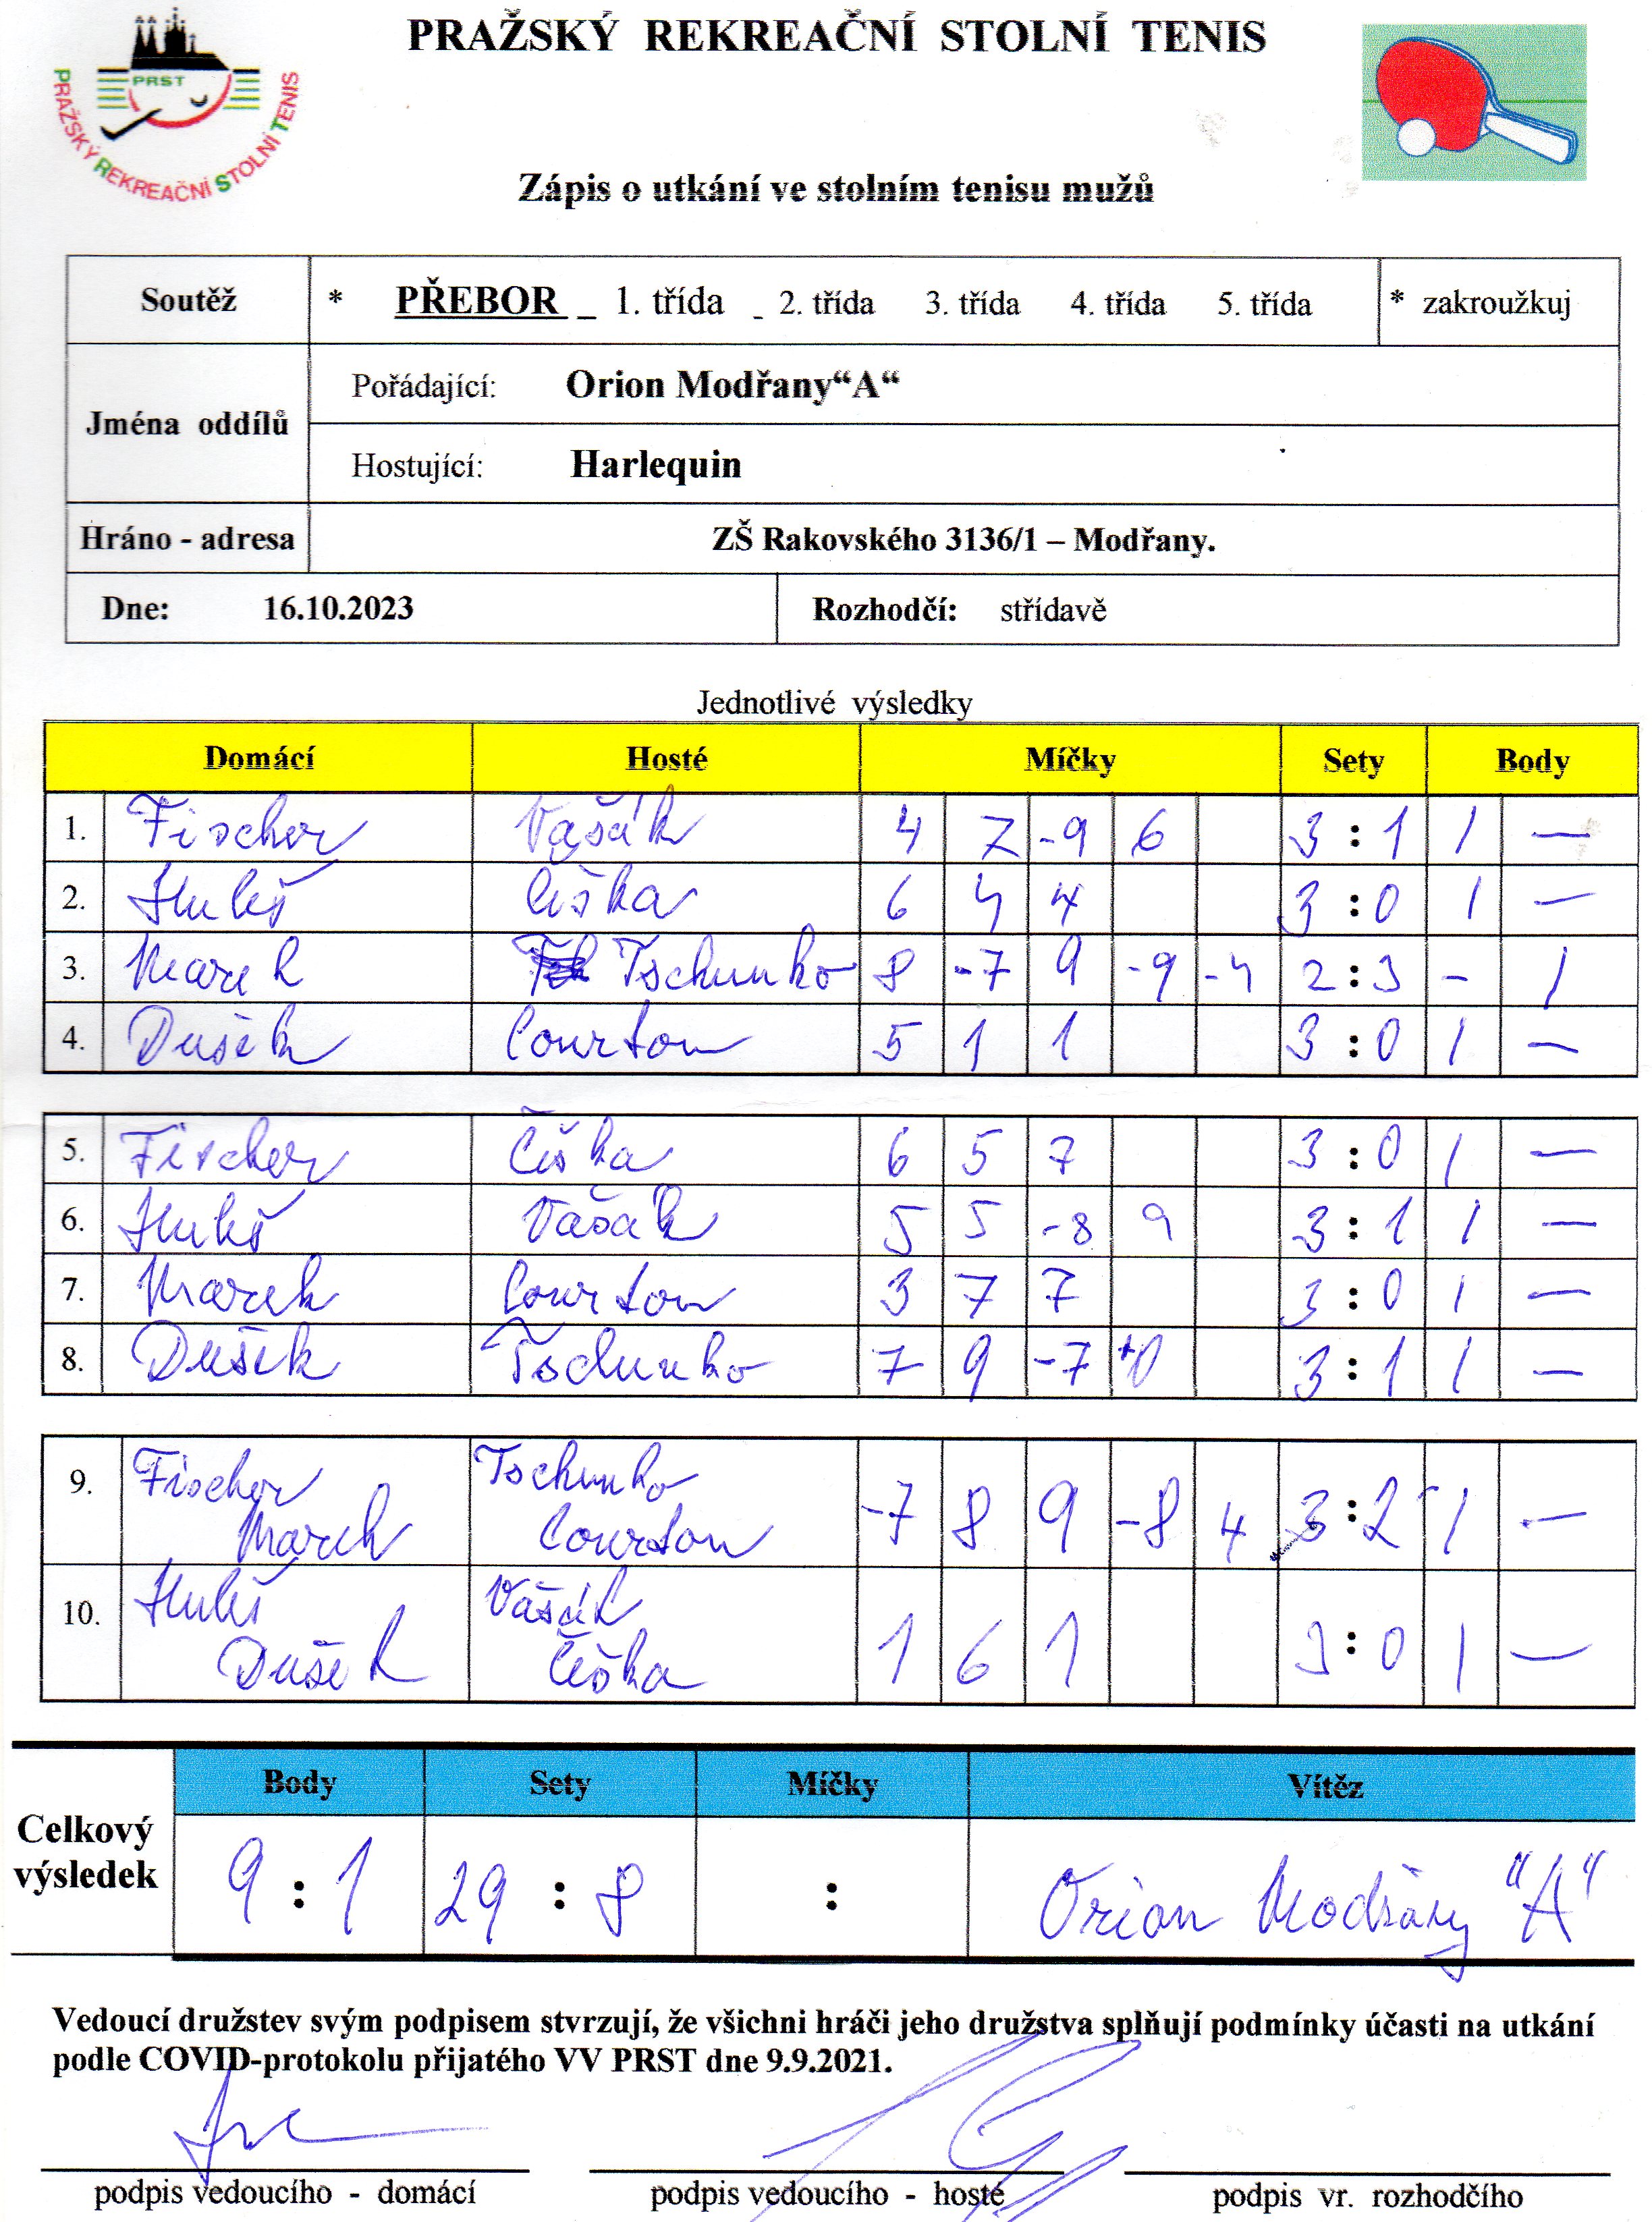 PRAŽSKÝ REKREAČNÍ STOLNÍ TENIS
PRST
PRAŽSKÝ REKREAČNÍ STOLNÍ TENIS
Zápis o utkání ve stolním tenisu mužů
Soutěž * PŘEBOR _ 1. třída - 2. třída 3. třída 4. třída 5. třída * zakroužkuj
Jména oddílů
Pořádající: Orion Modřany“A“
Hostující: Harlequin
Hráno - adresa ZŠ Rakovského 3136/1 – Modřany.
Dne: 16.10.2023 Rozhodčí: střídavě
Jednotlivé výsledky
Domácí Hosté Míčky Sety Body
1. Fischer Vašák 4 7 -9 6 3 : 1 1 —
2. Huliš Čiška 6 4 4 3 : 0 1 —
3. Marek Tschunko 8 -7 9 -9 -4 2 : 3 - 1
4. Dušek Courton 5 1 1 3 : 0 1 —
5. Fischer Čiška 6 5 7 3 : 0 1 —
6. Huliš Vašák 5 5 -8 9 3 : 1 1 —
7. Marek Courton 3 7 7 3 : 0 1 —
8. Dušek Tschunko 7 9 -7 +0 3 : 1 1 —
9. Fischer Tschunko
Marek Courton -7 8 9 -8 4 3 : 2 1 —
10. Huliš Vašák
Dušek Čiška 1 6 1 3 : 0 1 —
Body Sety Míčky Vítěz
Celkový výsledek 9 : 1 29 : 8 : Orion Modřany "A"
Vedoucí družstev svým podpisem stvrzují, že všichni hráči jeho družstva splňují podmínky účasti na utkání
podle COVID-protokolu přijatého VV PRST dne 9.9.2021.
podpis vedoucího - domácí podpis vedoucího - hosté podpis vr. rozhodčího